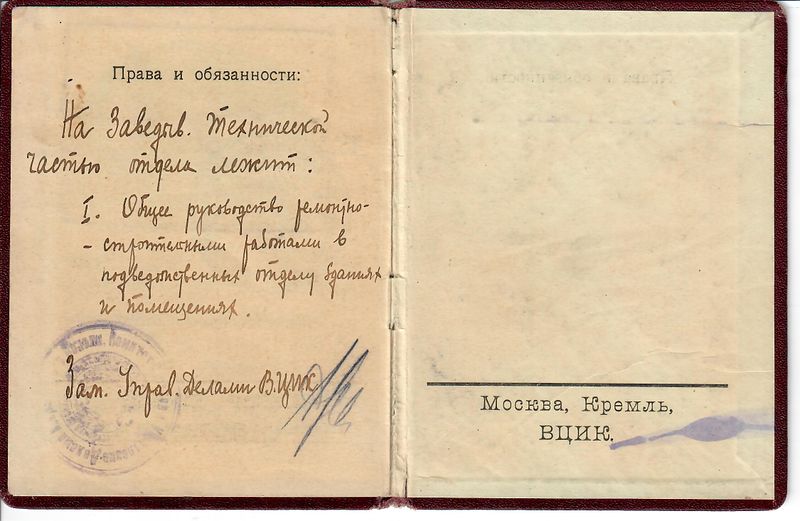 Права и обязанности:
На Заведыв. Технической
частью отдела лежит:
I. Общее руководство ремонтно-
- строительными работами в
подведомственных отделу зданиях
и помещениях.
Зам. Управ. Делами ВЦИК
Москва, Кремль,
ВЦИК.